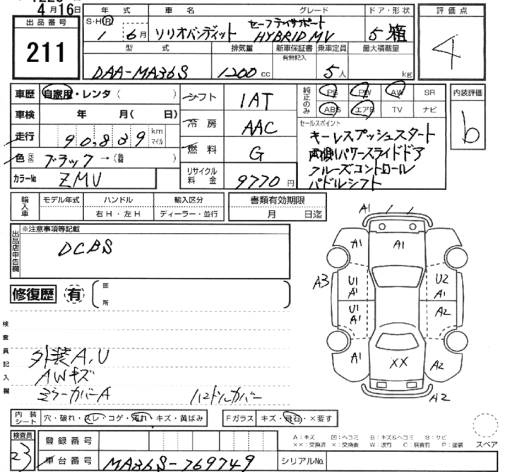 4月16日
出品番号
211
年式
車名
グレード
ドア・形状
評価点
S・H・R
1年6月
ソリオバンディット
セーフティサポート
HYBRID MV
5 箱
4
型式
排気量
新車保証書
有無記入
乗車定員
最大積載量
DAA-MA36S
1200 cc
5人
kg
車歴
自家用・レンタ ( )
シフト
1AT
純正のみ
PS
PW
AW
SR
内装評価
車検
年 月( 日)
冷房
AAC
ABS
エアB
TV
ナビ
b
走行
90,839
km
マイル
燃料
G
セールスポイント
キーレスプッシュスタート
両側パワースライドドア
クルーズコントロール
パドルシフト
色
ブラック→( )
カラーNo
ZMV
リサイクル料金
9770円
輸入車
モデル年式
ハンドル
輸入区分
書類有効期限
右H・左H
ディーラー・並行
月 日迄
出品店申告欄
※注意事項等記載
DCBS
修復歴
有
箇所
検査員記入欄
外装A,U
AWキズ
ミラーカバーA
ハンドルカバー
A1
A1
A1
A3
U1
A1
U2
A1
A1
A2
XX
A2
A2
内装シート
穴・破れ・スレ・コゲ・汚れ・キズ・黄ばみ
Fガラス
キズ・飛石・×要す
スペア
検査員
23
登録番号
車台番号
MA36S-769749
シリアルNo.